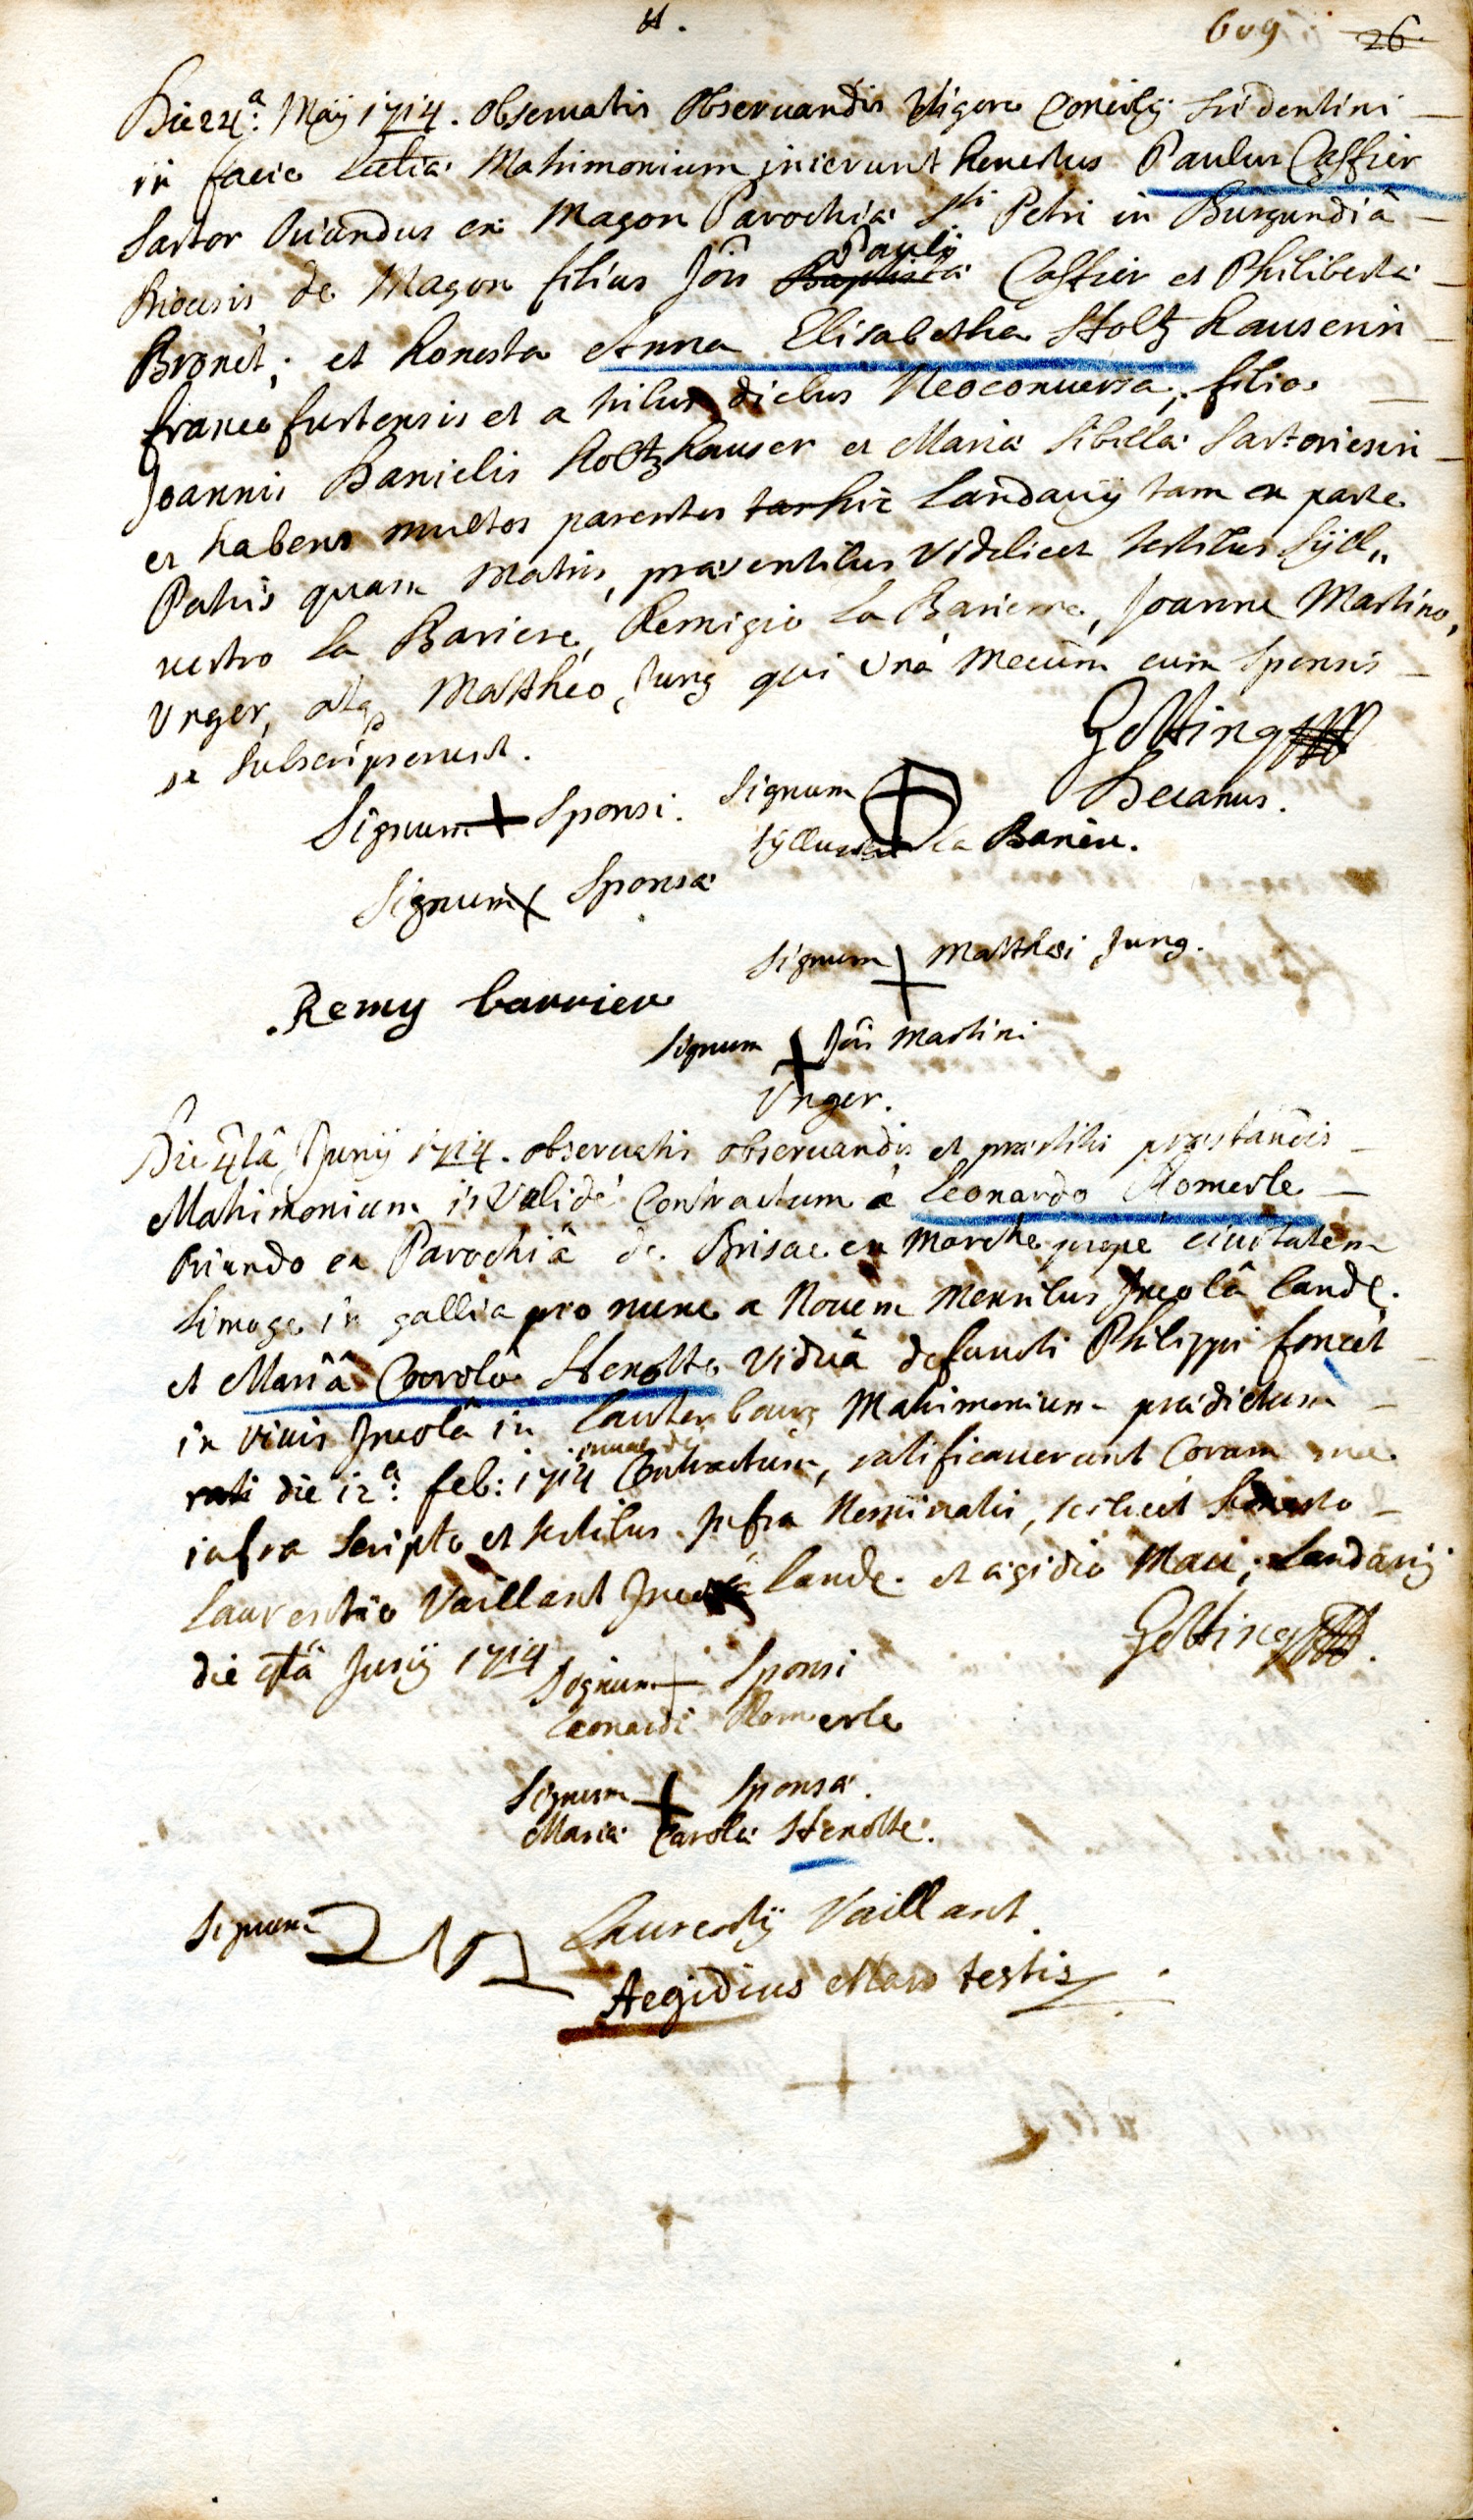 609 26.
Die 24ta: Maÿ 1714. observatis observandis vigore Concilÿ tridentini
in facie Eccliæ Matrimonium inierunt honestus Paulus Caffier
Sartor oriundus ex Magon Parochiæ Sti Petri in Burgundiâ
Diocesis de Magon filius Jôis Paulÿ Baptistæ Caffier et Philibertæ
Bronet; et honesta Anna Elisabetha Holtzhauserin
francofurtensis et a tribus diebus Neoconversa, filia
Joannis Danielis holtzhauser et Mariæ Sibillæ Sartoriesin
et habens multos parentes hic Landavÿ tam ex parte
Patris quam Matris, præsentibus videlicet testibus Sÿll„
vestro la Bariere, Remigio la Barierre, Joanne Martino,
Unger, atq Mattheo Jung qui unà mecum cum sponsis
se subscripserunt.
Gotting
Decanus.
Signum + Sponsi. Signum
Syllvestri la Barier.
Signum x Sponsæ
Signum + Matthei Jung.
Remy barrier
Signum + Jôis Martini
Unger.
Die 4tâ Junÿ 1714. observatis observandis et præstitis præstandis
Matrimonium invalidè Contractum à Leonardo Romerle
oriundo ex Parochiâ de Brisac en Marche prope civitatem
Limoge in gallia pro nunc a Novem Mensibus Incolâ Land.
et Mariâ Carolâ Henotte viduâ defuncti Philippi foncet
in vivis Incolâ in Lauterbourg Matrimonium prædictum
die 12a: feb: 1714 Contractum, ratificaverunt Coram me
infra scripto et testibus Infra Nominatis, scilicet honesto
Laurentio Vaillant Incolâ Lande. et ægidio Maci; Landavÿ
die 4tâ Junÿ 1714
Gotting
Signum + Sponsi
Leonardi Romerle
Signum + Sponsæ.
Mariæ Carolæ Henotte.
Signum Laurentÿ Vaillant.
Aegidius testis